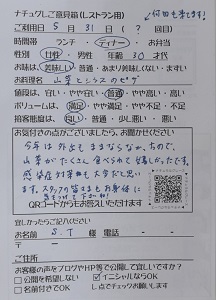 ナチュグしご意見箱(レストラン用)
何回も来てます!
ご利用日 5月 31日 (?回目)
時間帯 ランチ・ディナー・お弁当
性別 女性・男性 年齢 30才代
お味は 美味しい・普通・あまり美味しくない・まずい
お料理名 山菜とシラスのピザ
値段は 安い・やや安い・普通・やや高い・高い
ボリュームは 満足・やや満足・普通・やや不足・不足
接客態度は 良い・普通・少し悪い・悪い
お気付きの点がございましたら、お聞かせください
今年は外出もままならなかったので、
山菜がたくさん食べられて嬉しかったです。
感染症対策も大変だと思い
ます。スタッフの皆さまもお身体に
気をつけて下さいね!
QRコードからもお答えいただけます
宜しかったらご記入ください
お名前 S.T 様 電話 - -
〒 -
ご住所
お客様の声をブログやHP等で公開して宜しいですか?
公開を希望しない イニシャルならOK
名前付きでOK レ点でチェックお願いします